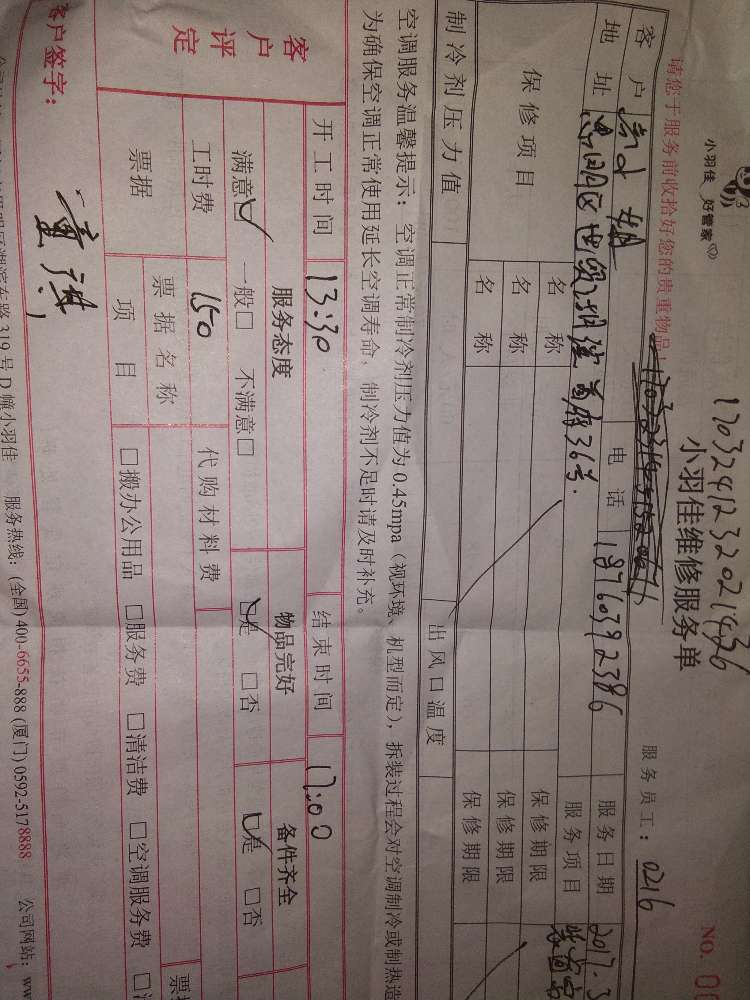 小羽佳 好管家
1703241232021436
小羽佳维修服务单
NO. 0
请您于服务前收拾好您的贵重物品!
服务员工: 0216
客户 电话 18760392386 服务日期 2017.3
地址 思明区世贸湖滨首府36号. 服务项目
保修项目 名称 保修期限
名称 保修期限
名称 保修期限
制冷剂压力值 出风口温度
空调服务温馨提示: 空调正常制冷剂压力值为0.45mpa(视环境、机型而定),拆装过程会对空调制冷或制热造
为确保空调正常使用延长空调寿命,制冷剂不足时请及时补充。
开工时间 13:30 结束时间 17:00
客户评定 服务态度 物品完好 备件齐全
满意☑ 一般□ 不满意□ ☑是 □否 ☑是 □否
工时费 150 代购材料费
票据 票据名称 票据
项目 □搬办公用品 □服务费 □清洁费 □空调服务费 □
客户签字:
319号D幢小羽佳 服务热线: (全国) 400-6655-888 (厦门) 0592-5178888 公司网站: ww